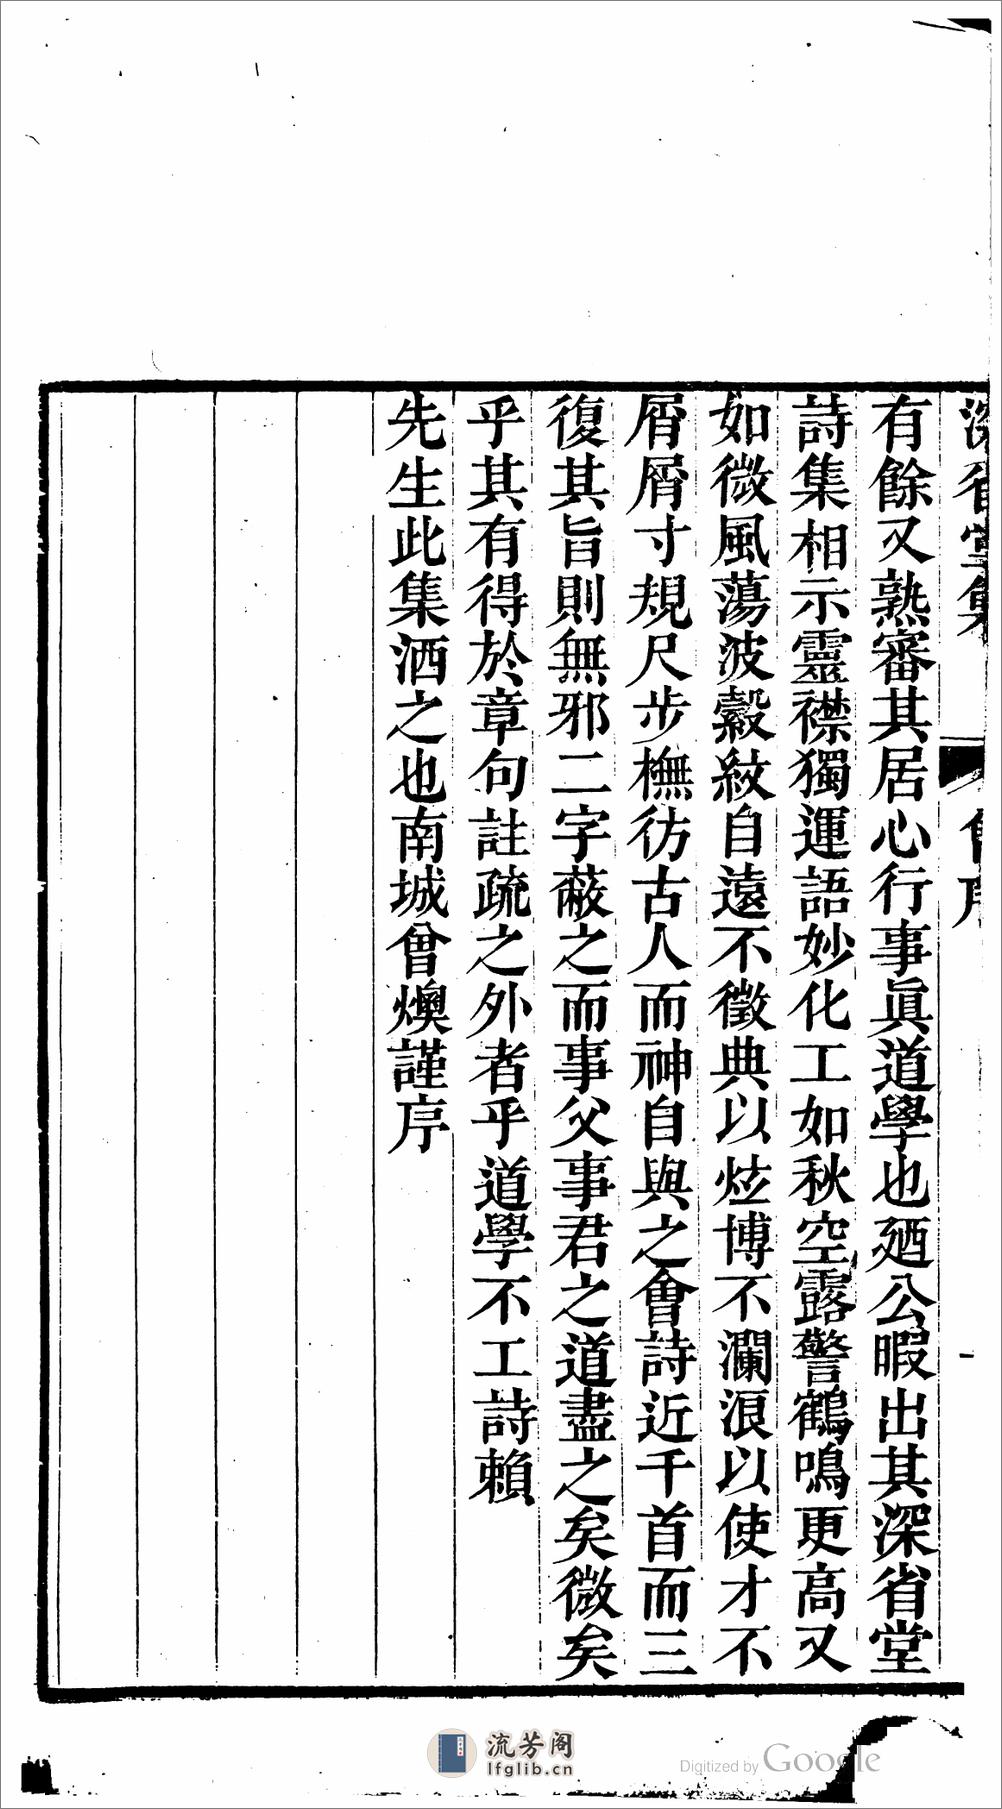 深省堂集 曾序
有餘又熟審其居心行事眞道學也廼公暇出其深省堂
詩集相示靈襟獨運語妙化工如秋空露警鶴鳴更高又
如微風蕩波縠紋自遠不徵典以炫博不瀾浪以使才不
屑屑寸規尺步橅彷古人而神自與之會詩近千首而三
復其旨則無邪二字蔽之而事父事君之道盡之矣微矣
乎其有得於章句註疏之外者乎道學不工詩賴
先生此集洒之也南城曾燠謹序
流芳阁
lfglib.cn
Digitized by Google